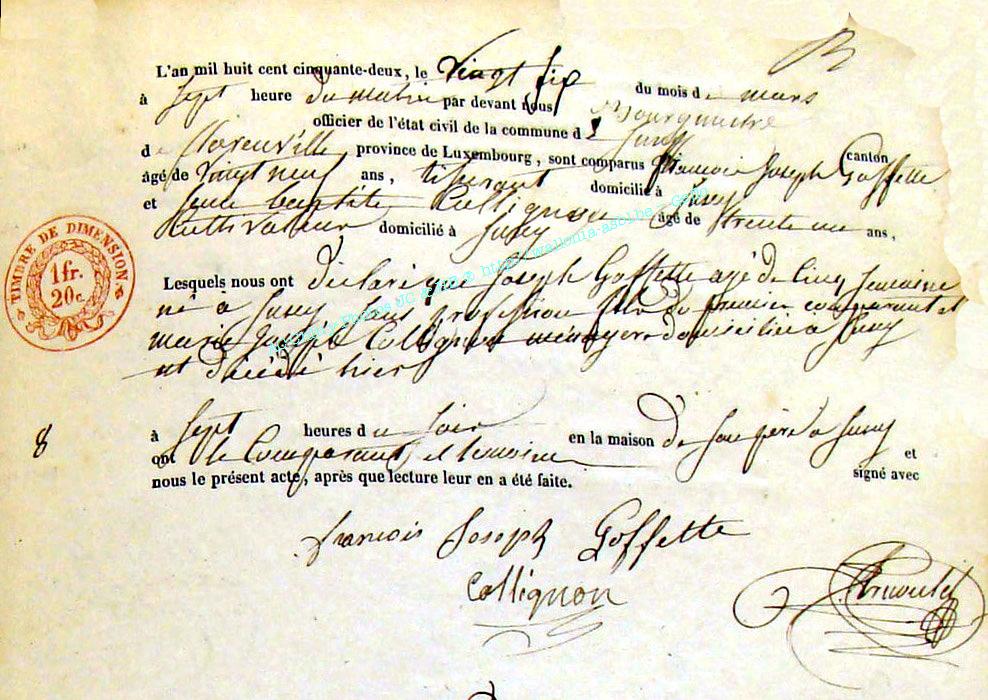 L'an mil huit cent cinquante-deux, le vingt six du mois de mars
à sept heure du matin par devant nous Bourgmestre
officier de l'état civil de la commune de Sugny
d canton
province de Luxembourg, sont comparus François Joseph Goffette
âgé de vingt neuf ans, tisserant domicilié à Sugny
et Jean baptiste Collignon âgé de trente un ans,
Cultivateur domicilié à Sugny
TIMBRE DE DIMENSION
1 fr.
20 c.
Lesquels nous ont déclaré que Joseph Goffette agé de cinq semaine
né à Sugny sans profession fils du premier comparant et
marie Joseph Collignon ménagere domicilié a Sugny
est décédé hier
8
à sept heures du soir en la maison de son père a Sugny et
ont le Comparant et temoin signé avec
nous le présent acte, après que lecture leur en a été faite.
françois Joseph Goffette
Collignon